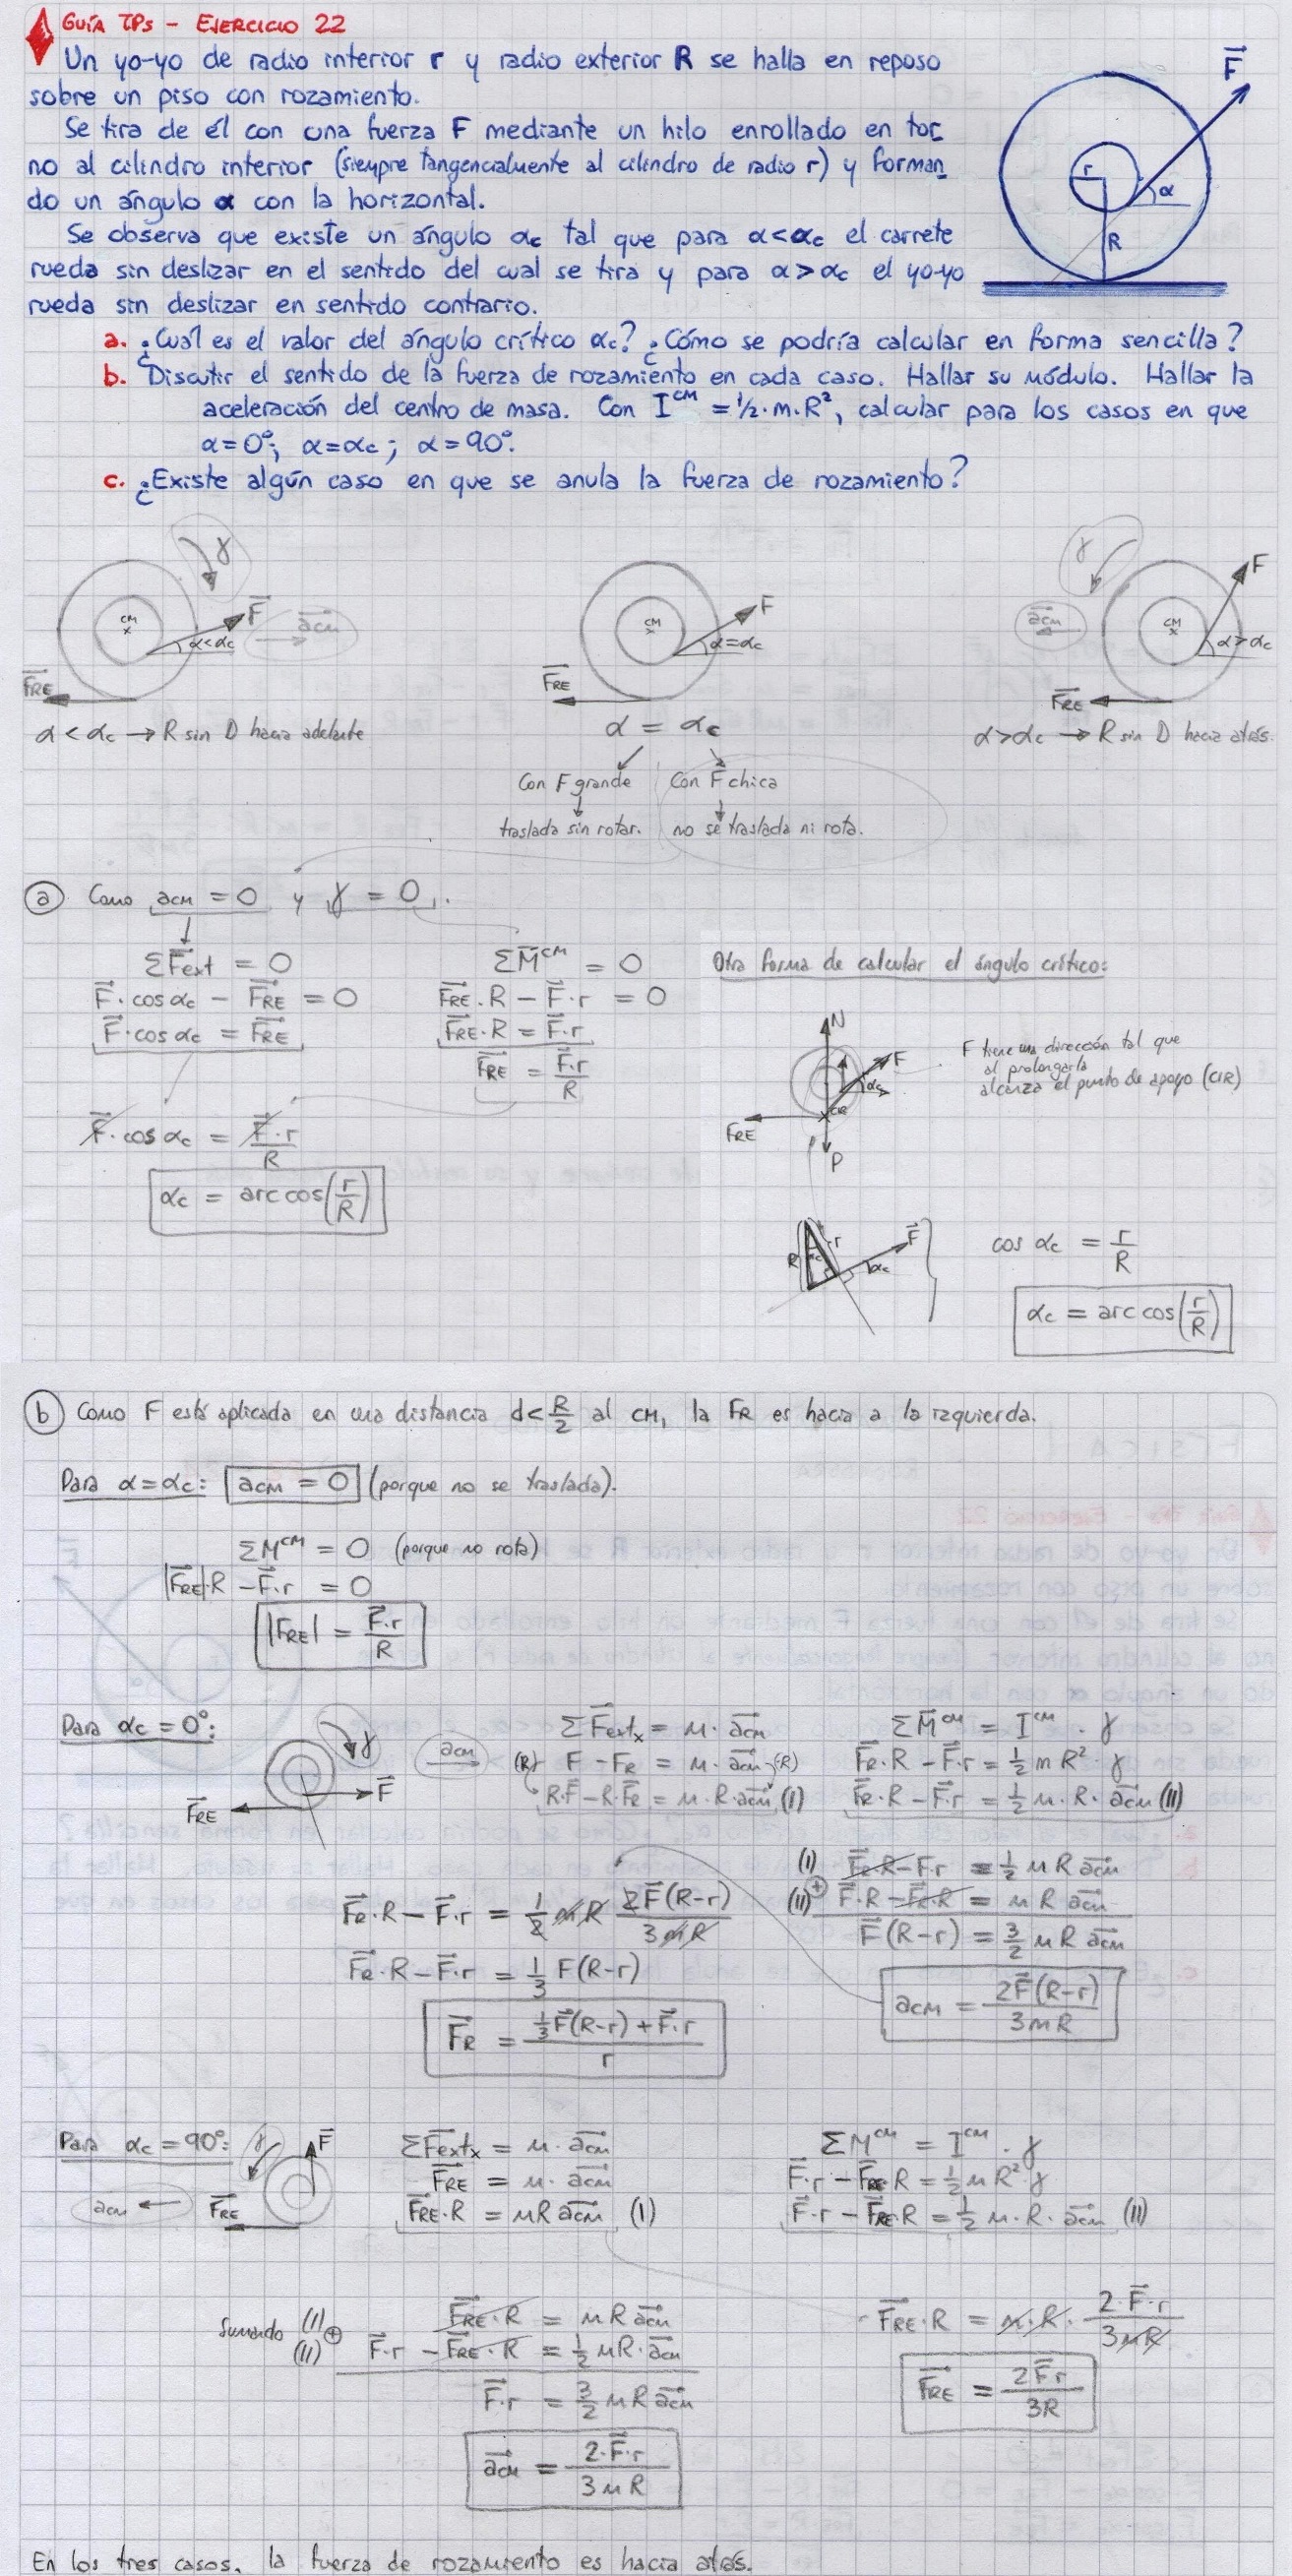 GUÍA TPs - EJERCICIO 22
Un yo-yo de radio interior r y radio exterior R se halla en reposo
sobre un piso con rozamiento.
Se tira de él con una fuerza F mediante un hilo enrollado en tor_
no al cilindro interior (siempre tangencialmente al cilindro de radio r) y forman_
do un ángulo α con la horizontal.
Se observa que existe un ángulo αc tal que para α<αc el carrete
rueda sin deslizar en el sentido del cual se tira y para α>αc el yo-yo
rueda sin deslizar en sentido contrario.
a. ¿Cuál es el valor del ángulo crítico αc? ¿Cómo se podría calcular en forma sencilla?
b. Discutir el sentido de la fuerza de rozamiento en cada caso. Hallar su módulo. Hallar la
aceleración del centro de masa. Con I^CM = 1/2·m·R², calcular para los casos en que
α=0°; α=αc; α=90°.
c. ¿Existe algún caso en que se anula la fuerza de rozamiento?
F
r
α
R
γ
CM
F
α<αc
acm
FRE
α < αc → R sin D hacia adelante
CM
F
α=αc
FRE
α = αc
Con F grande
Con F chica
traslada sin rotar.
no se traslada ni rota.
γ
acm
CM
F
α>αc
FRE
α>αc → R sin D hacia atrás.
a) Como acm = 0 y γ = 0.
ΣFext = 0
F·cos αc - FRE = 0
F·cos αc = FRE
ΣM^CM = 0
FRE·R - F·r = 0
FRE·R = F·r
FRE = F·r/R
F·cos αc = F·r/R
αc = arc cos(r/R)
Otra forma de calcular el ángulo crítico:
N
F
αc
CIR
FRE
P
F tiene una dirección tal que
al prolongarla
alcanza el punto de apoyo (CIR)
R
αc
r
F
αc
cos αc = r/R
αc = arc cos(r/R)
b) Como F está aplicada en una distancia d<R/2 al CM, la FR es hacia a la izquierda.
Para α=αc: acm = 0 (porque no se traslada).
ΣM^CM = 0 (porque no rota)
|FRE|·R - F·r = 0
|FRE| = F·r/R
Para αc = 0°:
γ
acm
F
FRE
ΣFextx = m·acm
(R) F - FR = m·acm (R)
R·F - R·FR = m·R·acm (I)
ΣM^CM = I^CM · γ
FR·R - F·r = 1/2 m R² · γ
FR·R - F·r = 1/2 m·R·acm (II)
(I) FR·R - F·r = 1/2 m R acm
(II) ⊕ F·R - FR·R = m R acm
F(R-r) = 3/2 m R acm
acm = 2F(R-r)/3mR
FR·R - F·r = 1/2 mR 2F(R-r)/3mR
FR·R - F·r = 1/3 F(R-r)
FR = (1/3 F(R-r) + F·r)/r
Para αc = 90°:
γ
F
acm
FRE
ΣFextx = m·acm
FRE = m·acm
FRE·R = mR acm (I)
ΣM^CM = I^CM · γ
F·r - FRE R = 1/2 m R²·γ
F·r - FRE R = 1/2 m·R·acm (II)
Sumando (I) ⊕ (II)
FRE·R = mR acm
F·r - FRE·R = 1/2 mR·acm
F·r = 3/2 m R acm
acm = 2·F·r/3mR
FRE·R = m·R· 2·F·r/3mR
FRE = 2Fr/3R
En los tres casos, la fuerza de rozamiento es hacia atrás.